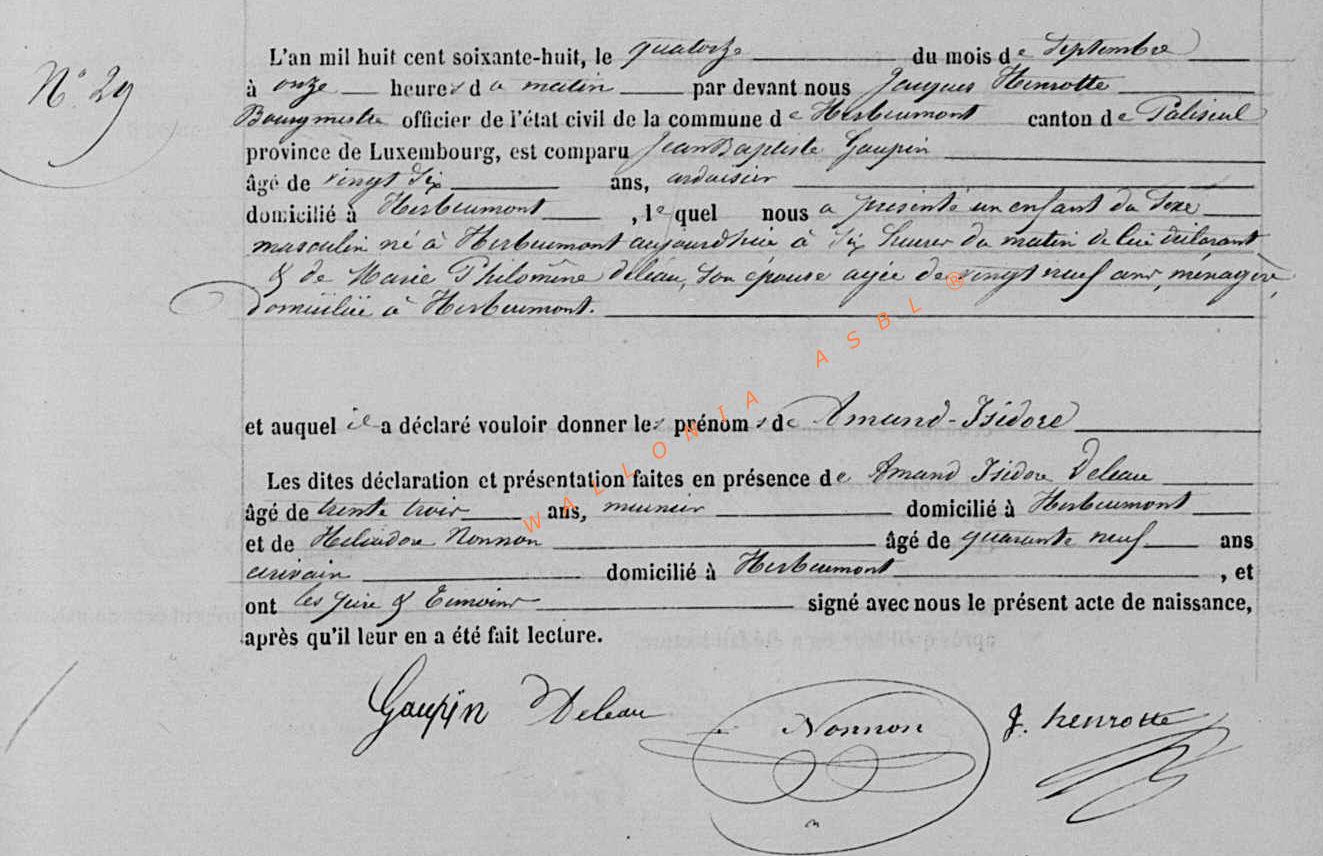 N° 29
L'an mil huit cent soixante-huit, le quatorze du mois de Septembre
à onze heures du matin par devant nous Jacques Henrotte
Bourgmestre officier de l'état civil de la commune de Herbeumont canton de Paliseul
province de Luxembourg, est comparu Jean Baptiste Gaupin
âgé de vingt six ans, ardoisier
domicilié à Herbeumont, lequel nous a présenté un enfant du sexe
masculin né à Herbeumont aujourdhui à six heures du matin de lui déclarant
& de Marie Philomène Déleau, son épouse agée de vingt neuf ans, ménagère,
domiciliée à Herbeumont.
et auquel il a déclaré vouloir donner les prénoms de Amand-Isidore
Les dites déclaration et présentation faites en présence de Amand Isidore Deleau
âgé de trente trois ans, meunier domicilié à Herbeumont
et de Heliodore Nonnon âgé de quarante neuf ans
écrivain domicilié à Herbeumont, et
ont les père & témoins signé avec nous le présent acte de naissance,
après qu'il leur en a été fait lecture.
Gaupin Deleau Nonnon J. henrotte
WALLONIA ASBL ®